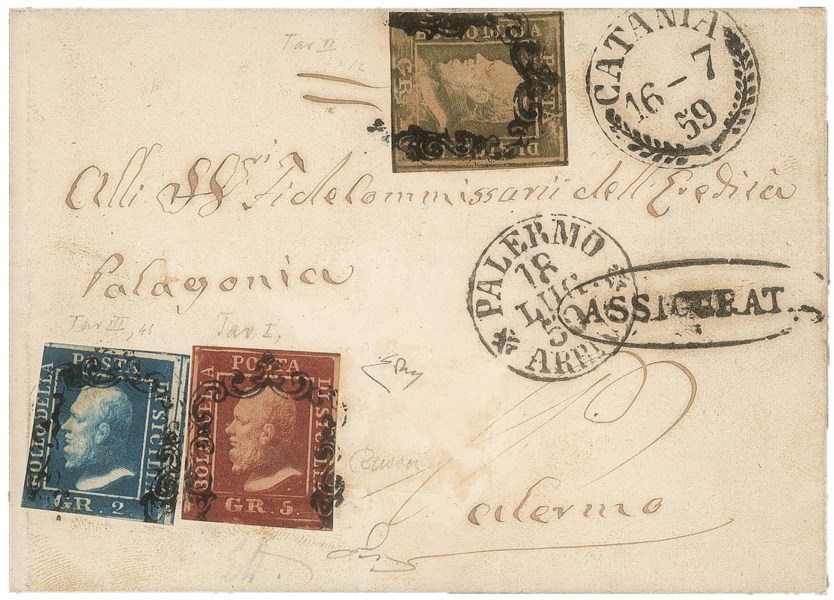 Tav II
BOLLO DELLA POSTA DI SICILIA
GR.
CATANIA
16 - 7
59
Alli SS.ri Fidecommissarii dell'Eredità
Palagonia
PALERMO
18
LUG.
59
ARRI
ASSICURAT
Tav III, 41
Tav I,
BOLLO DELLA POSTA DI SICILIA
GR. 2
BOLLO DELLA POSTA DI SICILIA
GR. 5.
Palermo